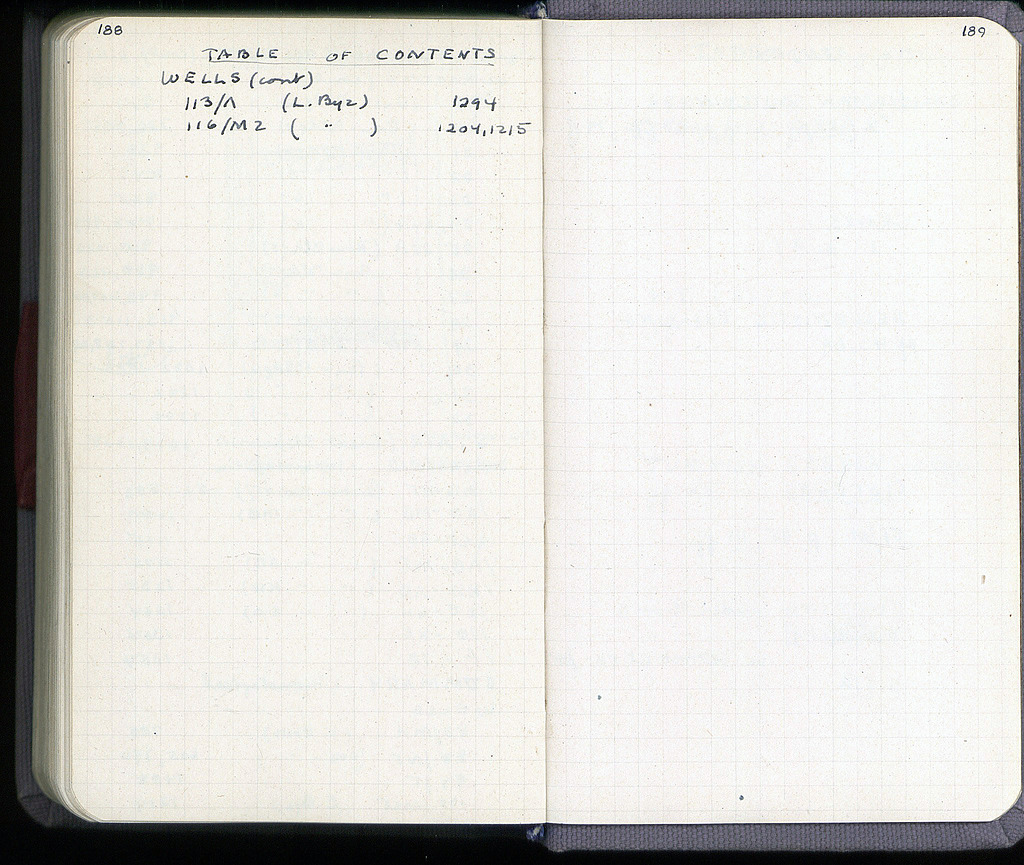 188
TABLE OF CONTENTS
WELLS (cont)
113/Λ (L. Byz) 1294
116/M2 ( " ) 1204, 1215
189